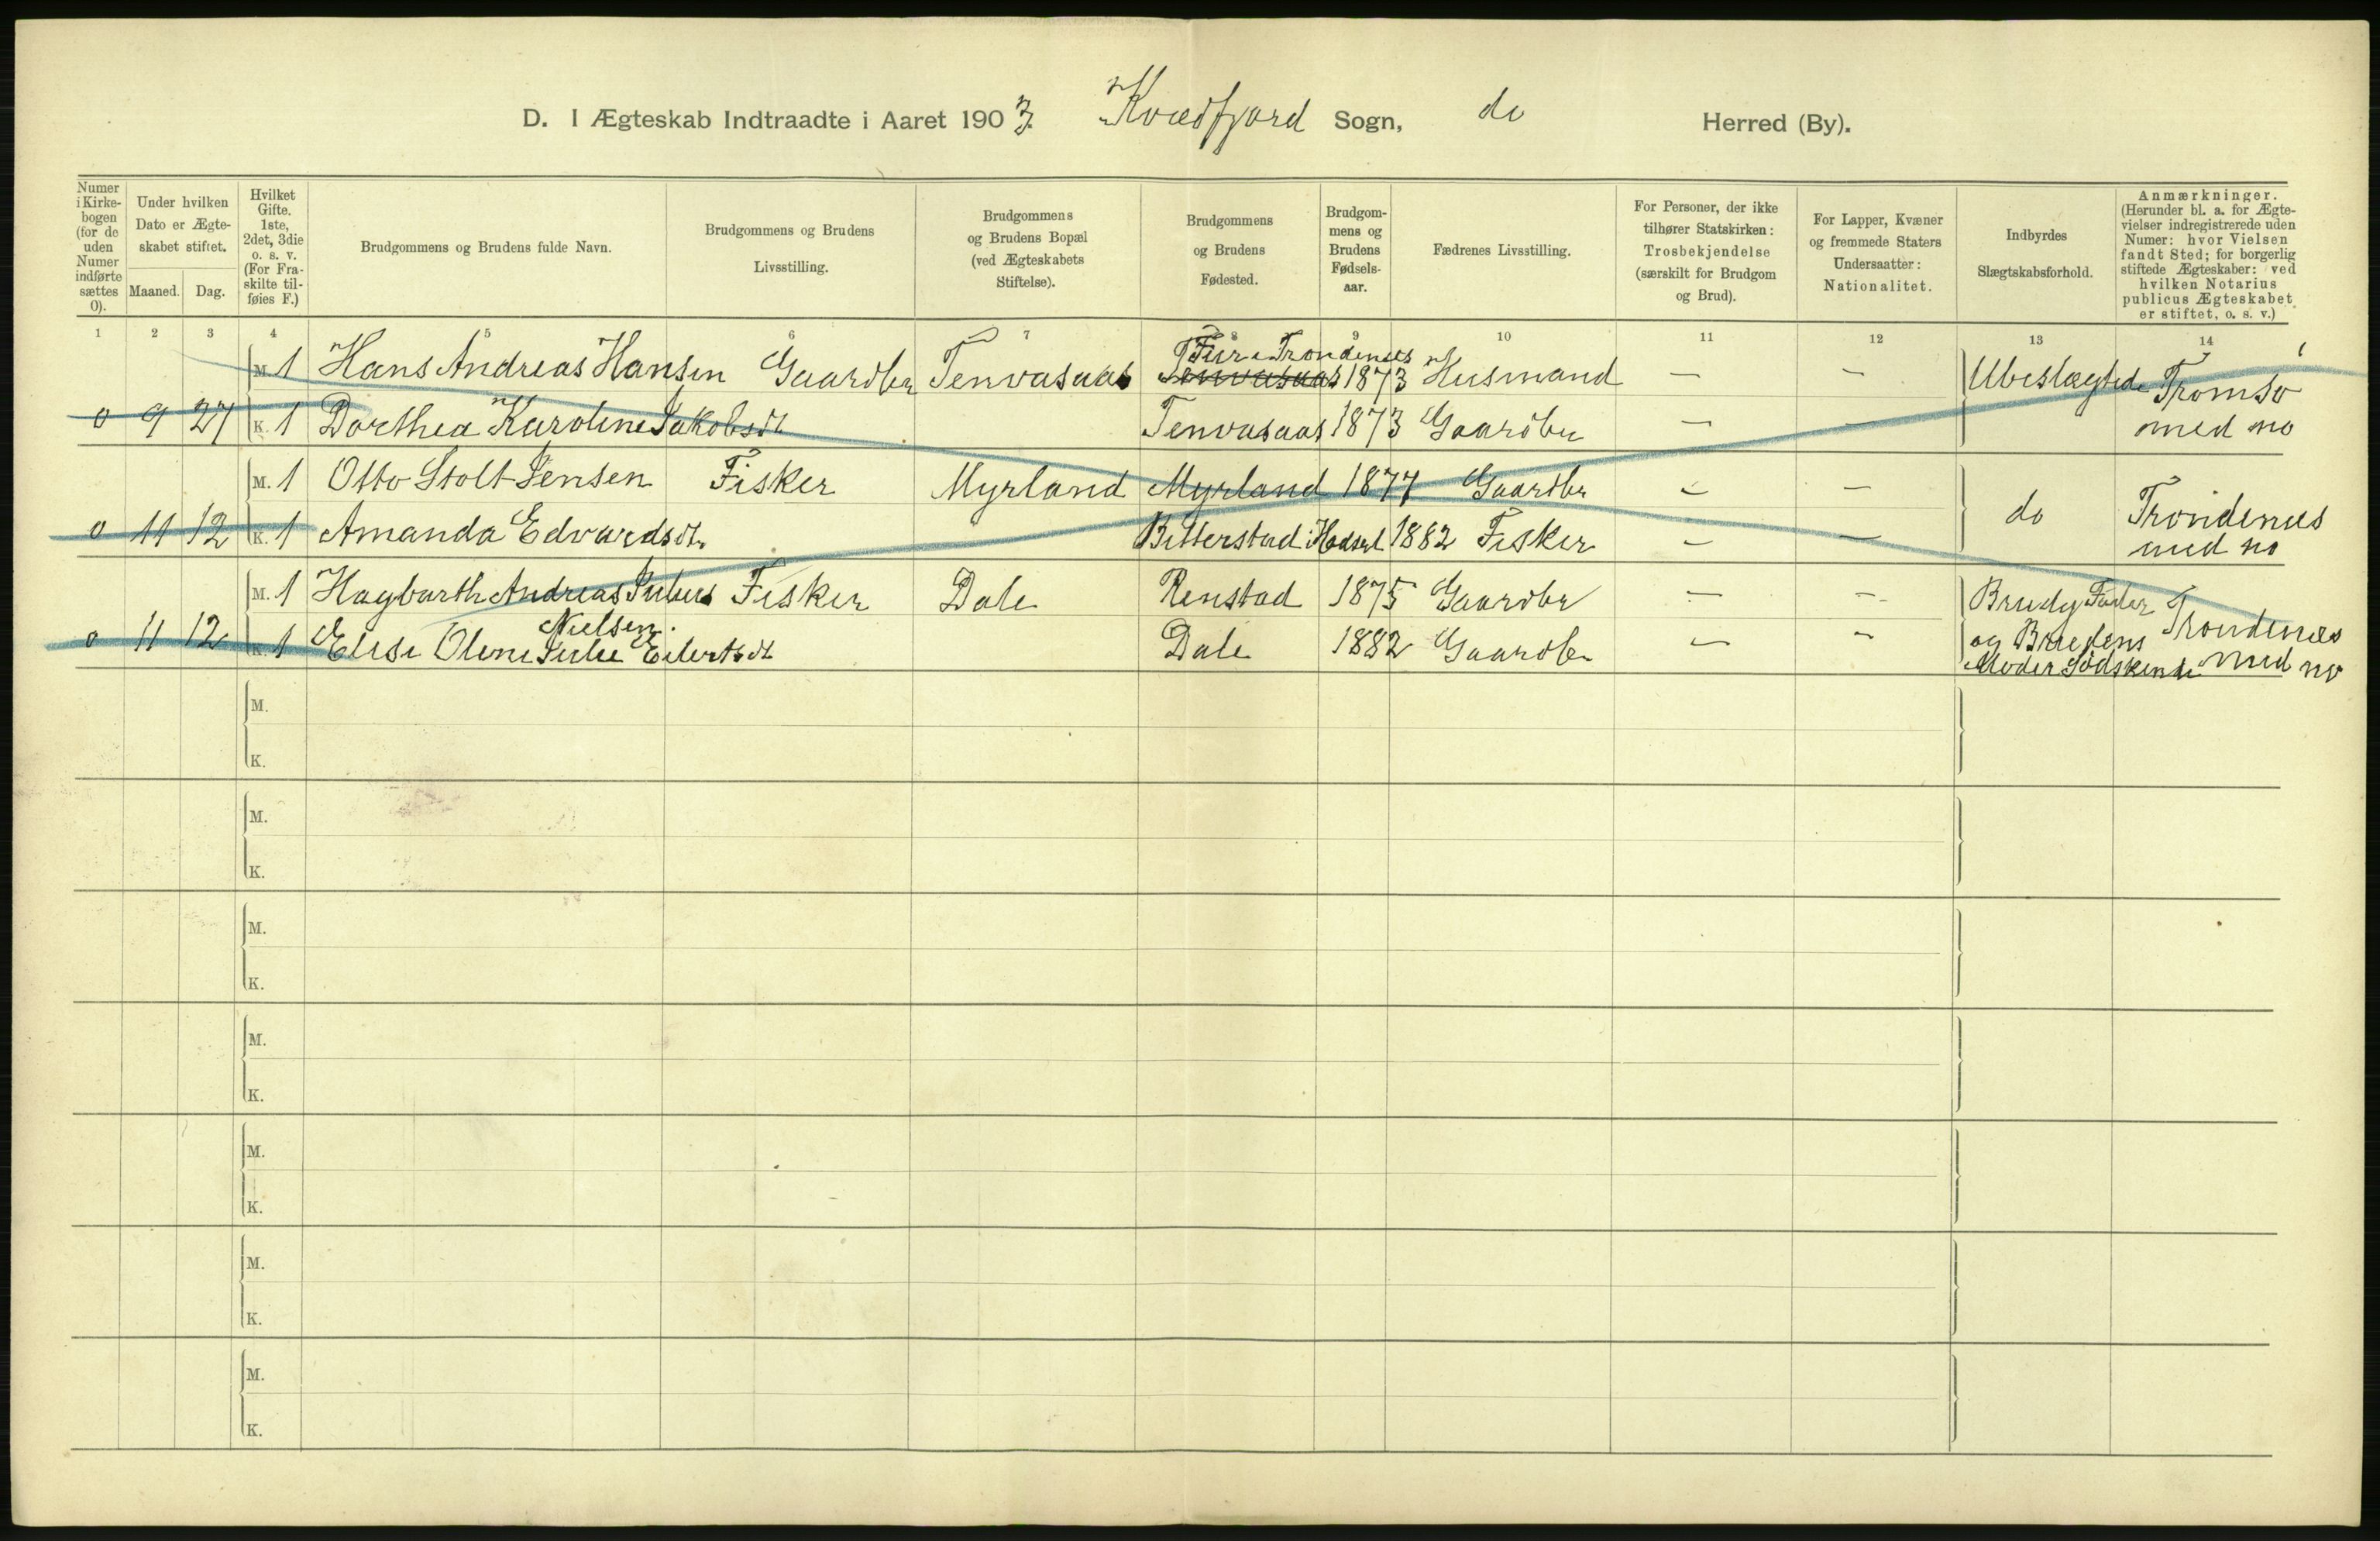 D. I Ægteskab Indtraadte i Aaret 1903. Kvædfjord Sogn, do Herred (By).
Numer i Kirkebogen (for de uden Numer indførte sættes 0).
Under hvilken Dato er Ægteskabet stiftet.
Maaned. Dag.
Hvilket Gifte. 1ste, 2det, 3die o. s. v. (For Fraskilte tilføies F.)
Brudgommens og Brudens fulde Navn.
Brudgommens og Brudens Livsstilling.
Brudgommens og Brudens Bopæl (ved Ægteskabets Stiftelse).
Brudgommens og Brudens Fødested.
Brudgommens og Brudens Fødselsaar.
Fædrenes Livsstilling.
For Personer, der ikke tilhører Statskirken: Trosbekjendelse (særskilt for Brudgom og Brud).
For Lapper, Kvæner og fremmede Staters Undersaatter: Nationalitet.
Indbyrdes Slægtskabsforhold.
Anmærkninger. (Herunder bl. a. for Ægtevielser indregistrerede uden Numer: hvor Vielsen fandt Sted; for borgerlig stiftede Ægteskaber: ved hvilken Notarius publicus Ægteskabet er stiftet, o. s. v.)
1 2 3 4 5 6 7 8 9 10 11 12 13 14
M. 1 Hans Andreas Hansen Gaardbr Tenvasaas Trondenes Tenvasaas 1873 Husmand — — Ubeslægtede Tromsø
0 9 27 K. 1 Dorthea Karoline Jakobsdt Tenvasaas 1873 Gaardbr — — med no
M. 1 Otto Stolt Jensen Fisker Myrland Myrland 1877 Gaardbr — — do Trondenes
0 11 12 K. 1 Amanda Edvardsdt. Bitterstad i Hadsel 1882 Fisker — — med no
M. 1 Hagbarth Andreas Julius Fisker Dale Renstad 1875 Gaardbr — — Brudg Fader Trondenæs
Nielsen.
0 11 12 K. 1 Elise Oline Julie Eilertsdt Dale 1882 Gaardbr — — og Brudens
Moder Sødskende med no
M.
K.
M.
K.
M.
K.
M.
K.
M.
K.
M.
K.
M.
K.